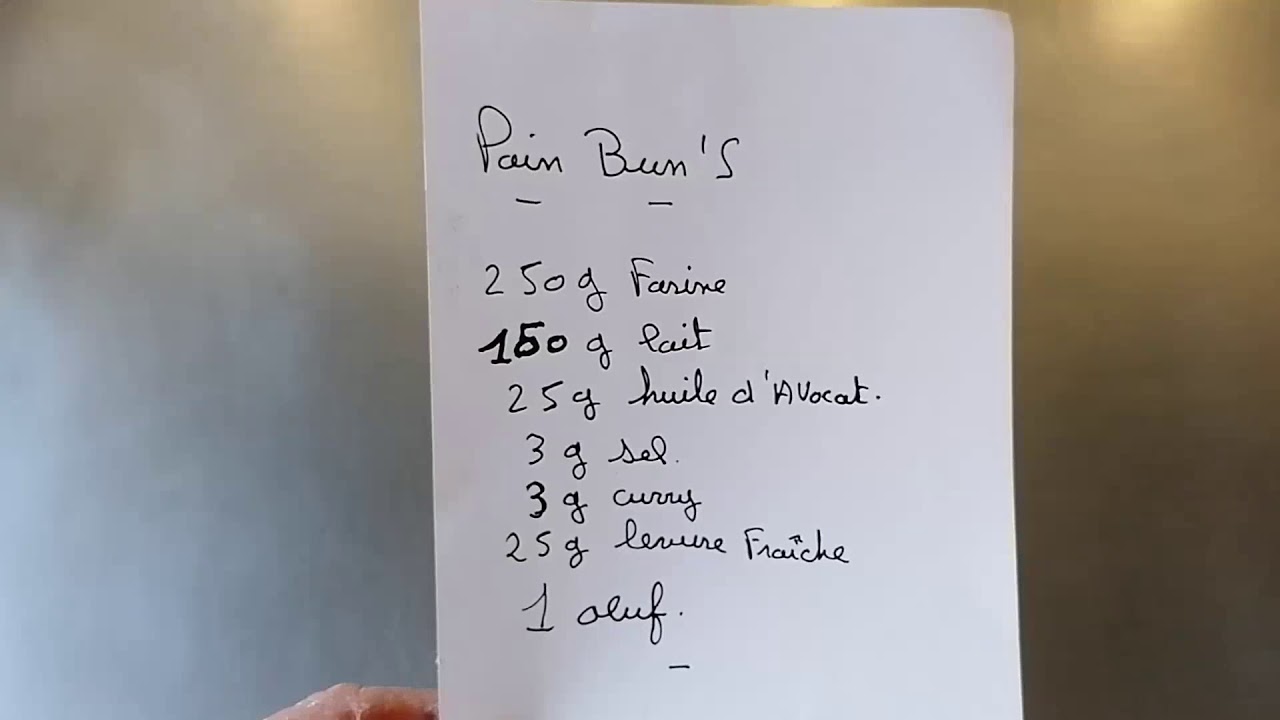 Pain Bun's
250g Farine
150 g lait
25g huile d'Avocat.
3 g sel.
3 g curry
25g levure Fraîche
1 œuf.